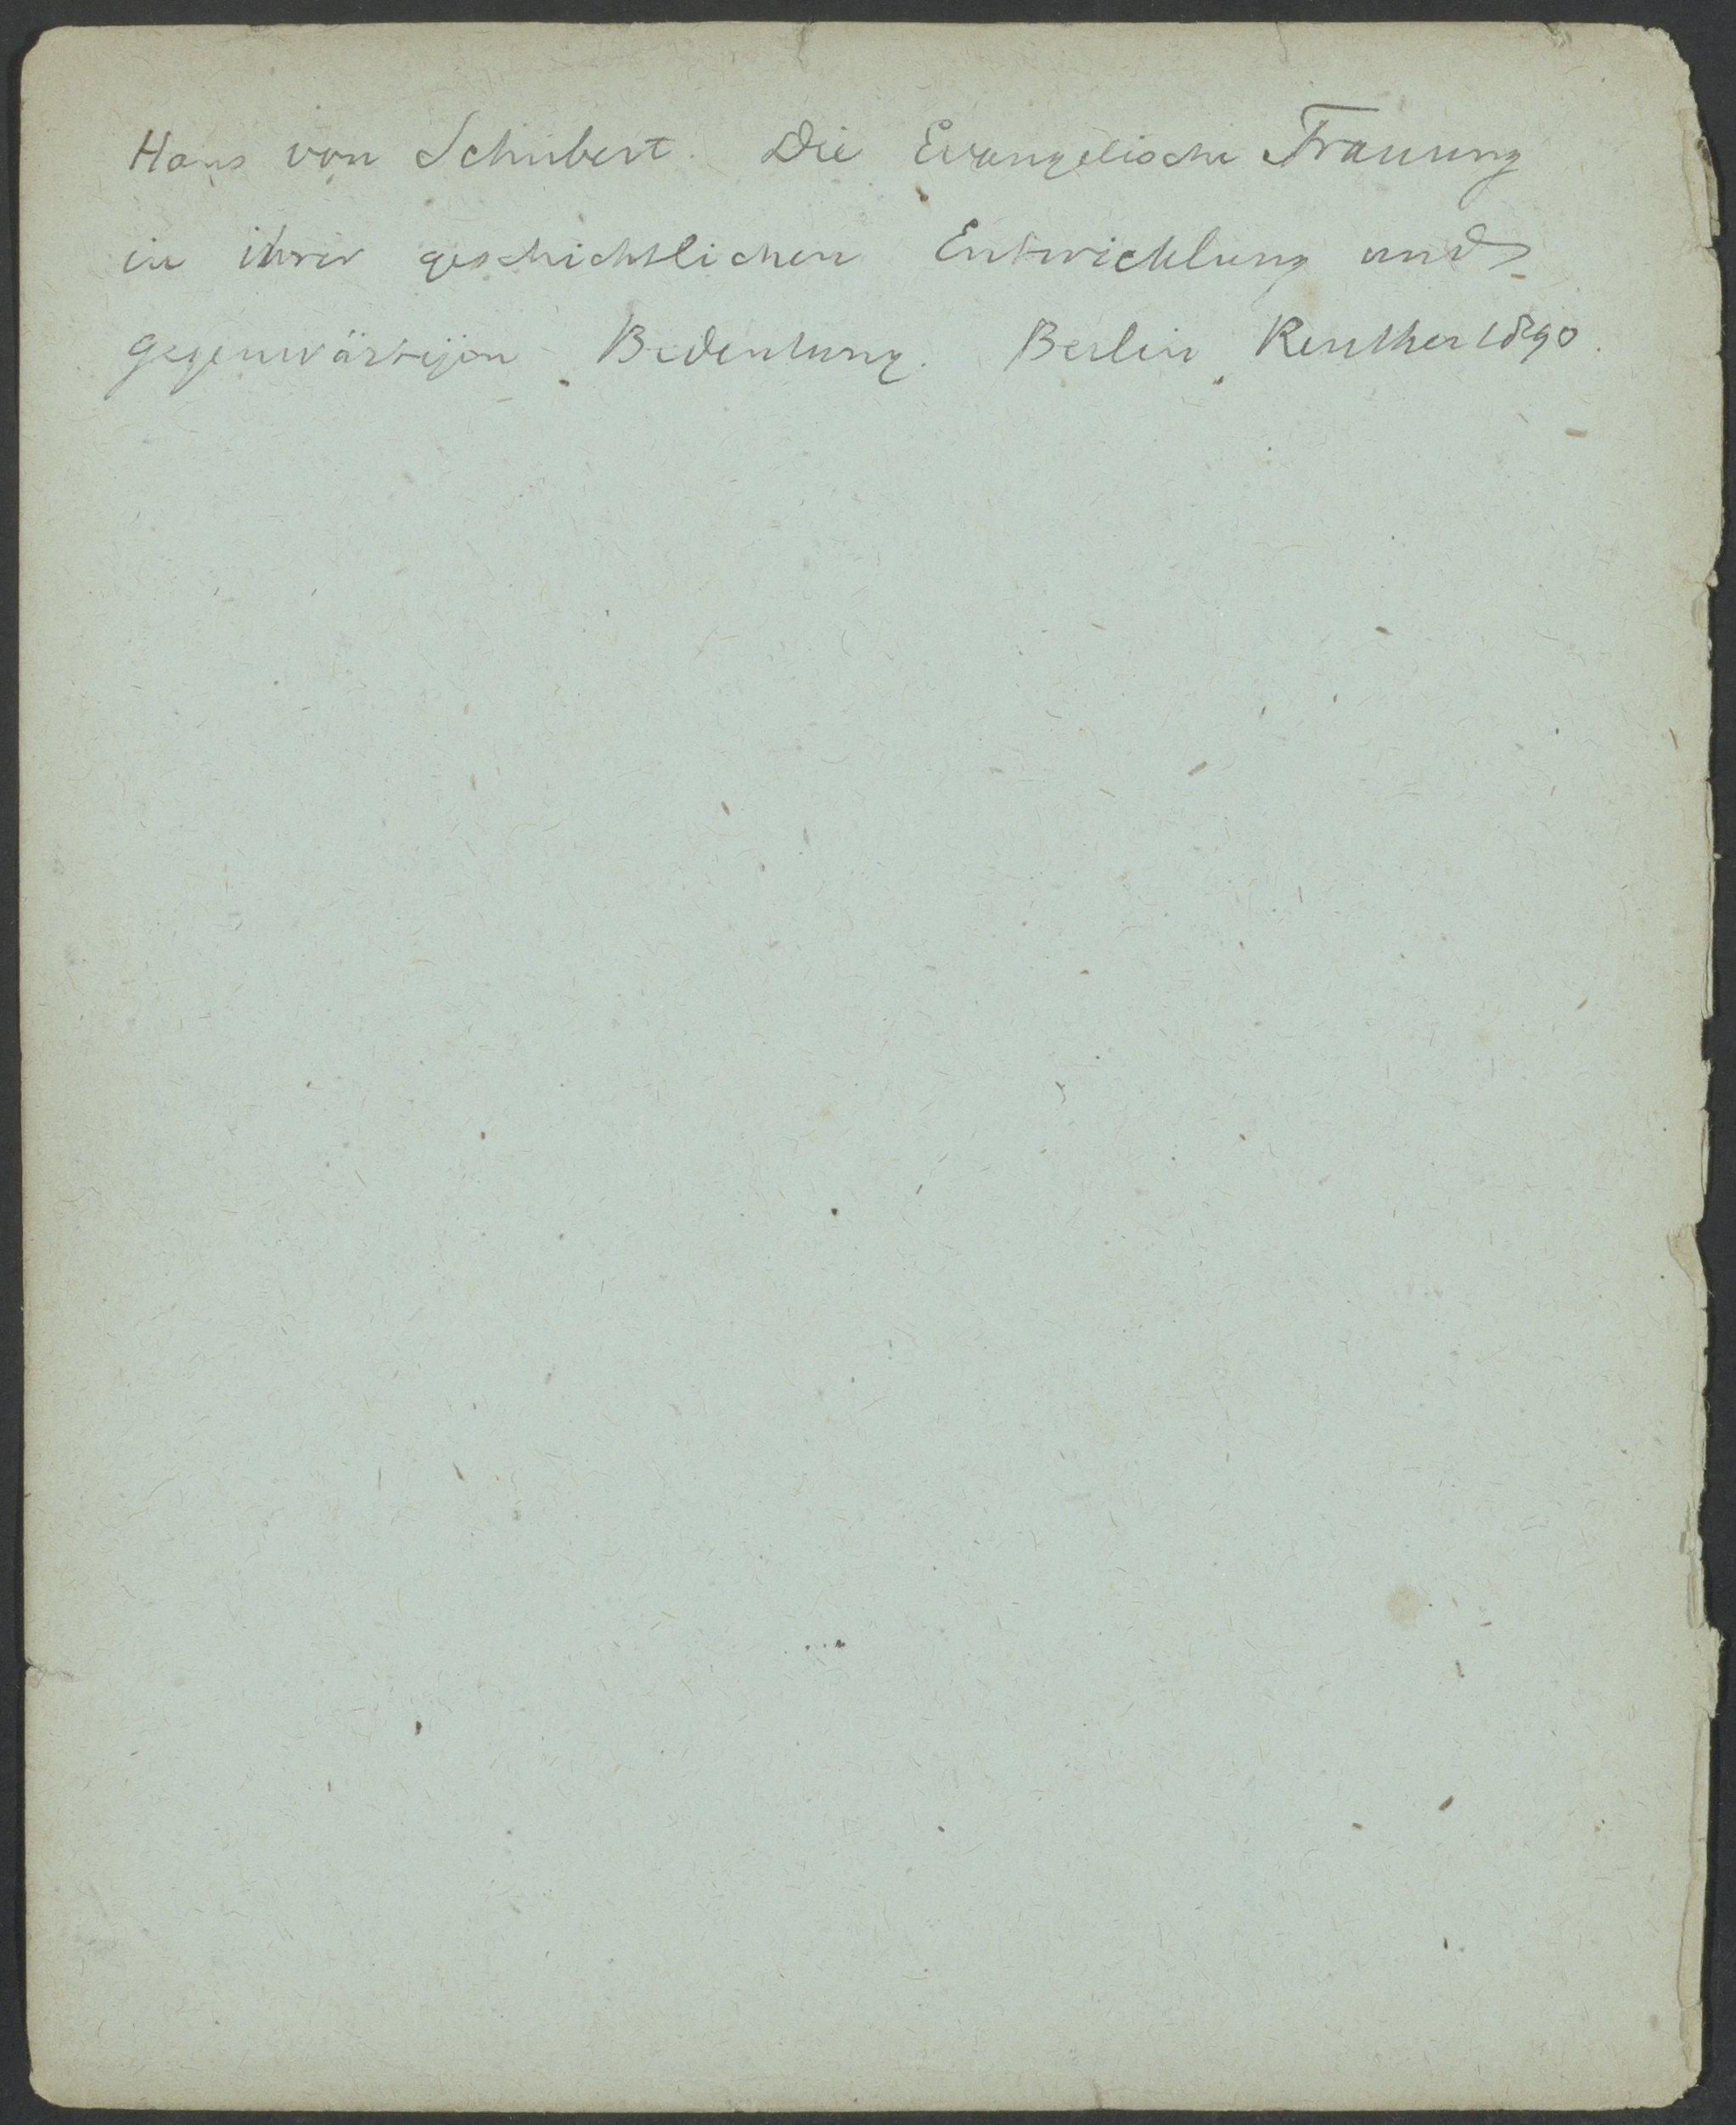 Hans von Schubert. Die Evangelische Trauung
in ihrer geschichtlichen Entwicklung und
gegenwärtigen Bedeutung. Berlin Reuther 1890.